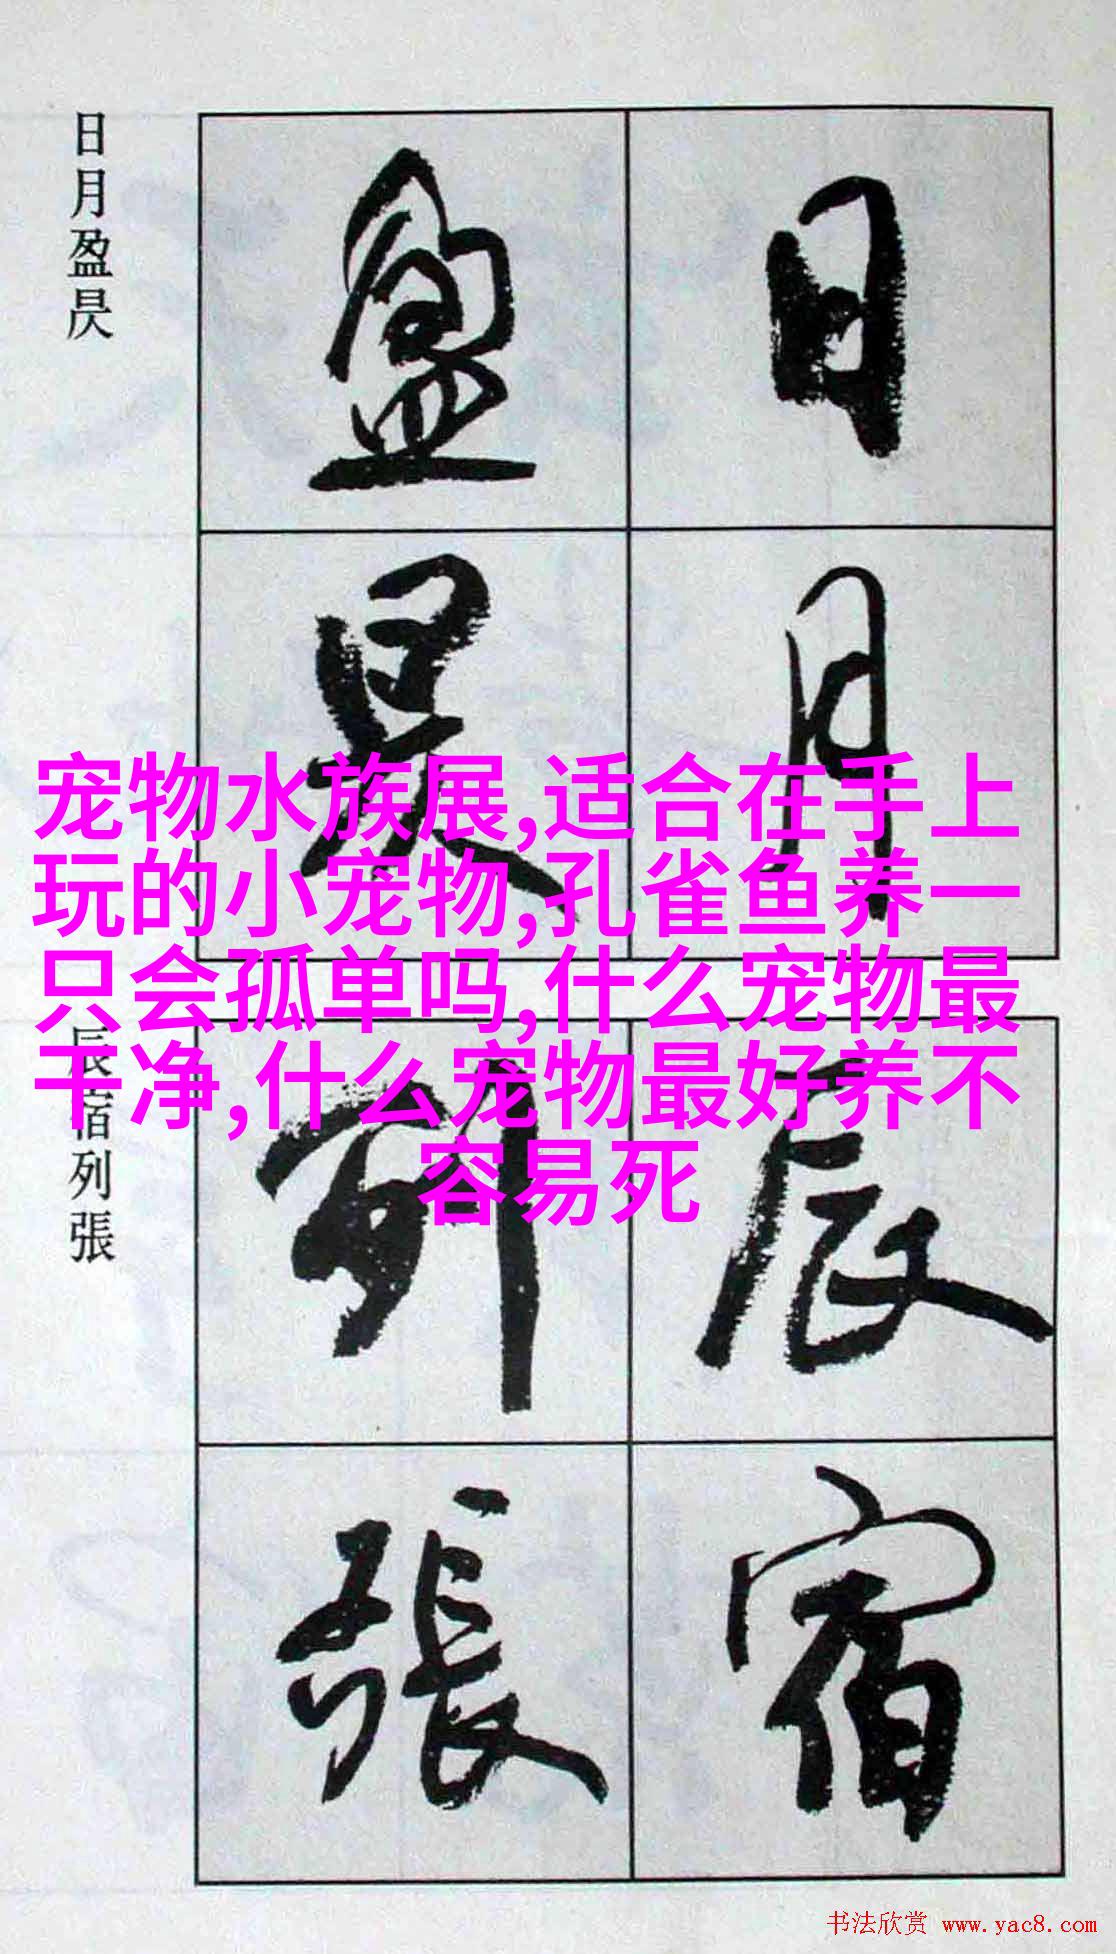 日月盈昃
日
月
盈
昃
宠物水族展,适合在手上
玩的小宠物,孔雀鱼养一
只会孤单吗,什么宠物最
干净,什么宠物最好养不
容易死
辰宿列張
辰
宿
列
張
书法欣赏 www.yac8.com